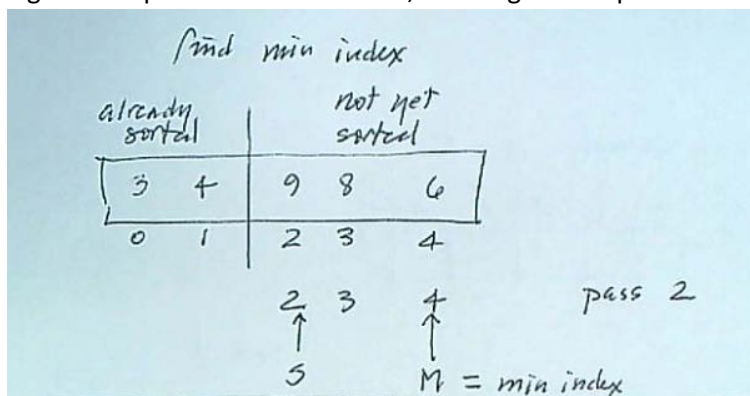 find min index
already not yet
sorted sorted
3 4 9 8 6
0 1 2 3 4
2 3 4 pass 2
S M = min index